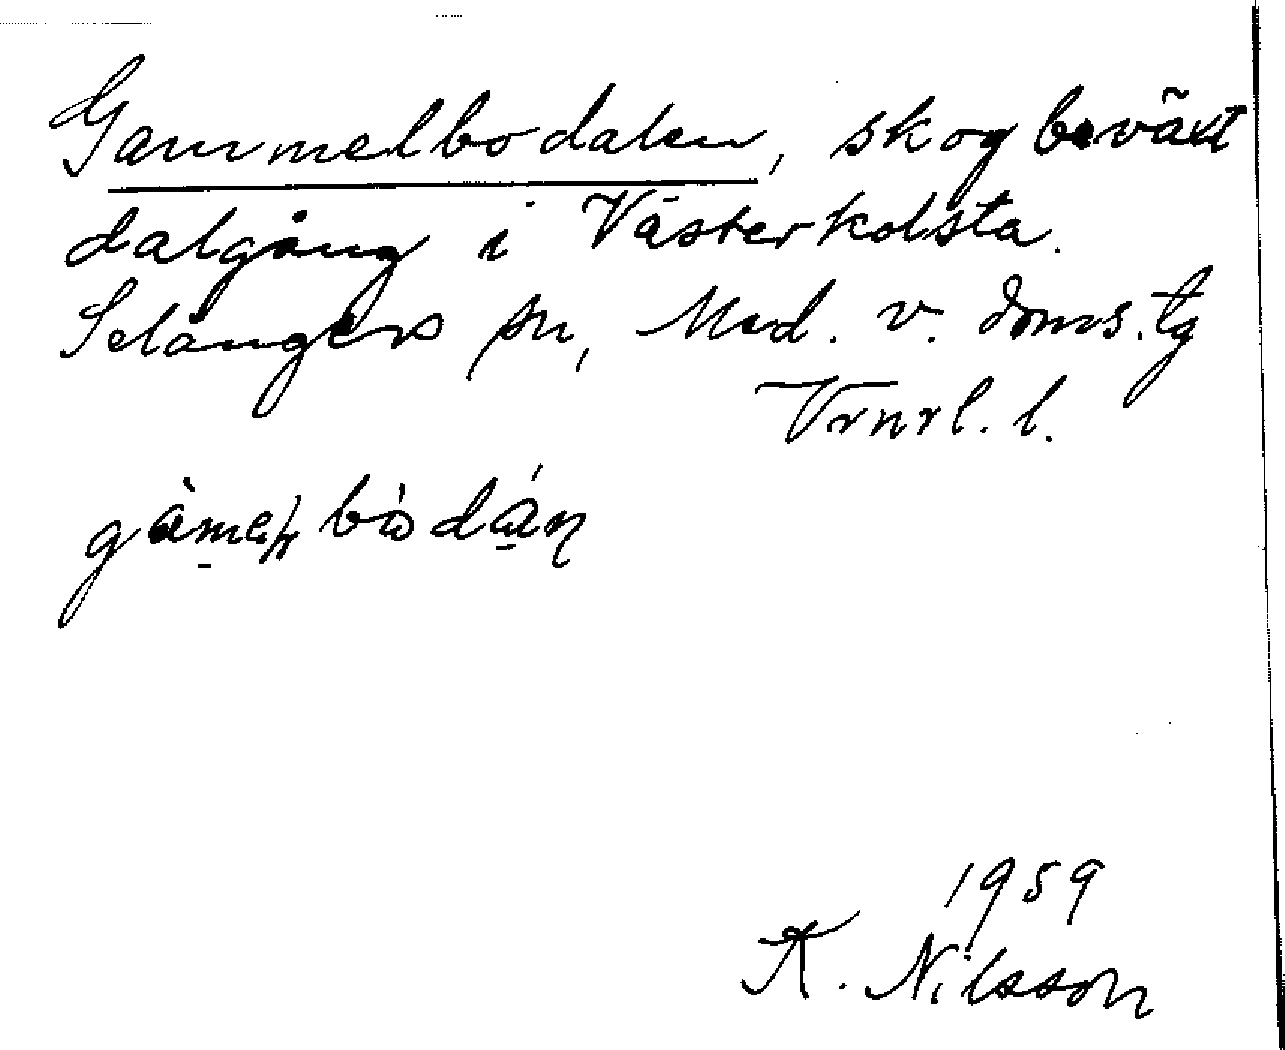 Gammelbodalen, skogbeväxt
dalgång i Västerkolsta.
Selångers sn, Med. v. doms.tg
Vrnrl. l.
1959
K. Nilsson